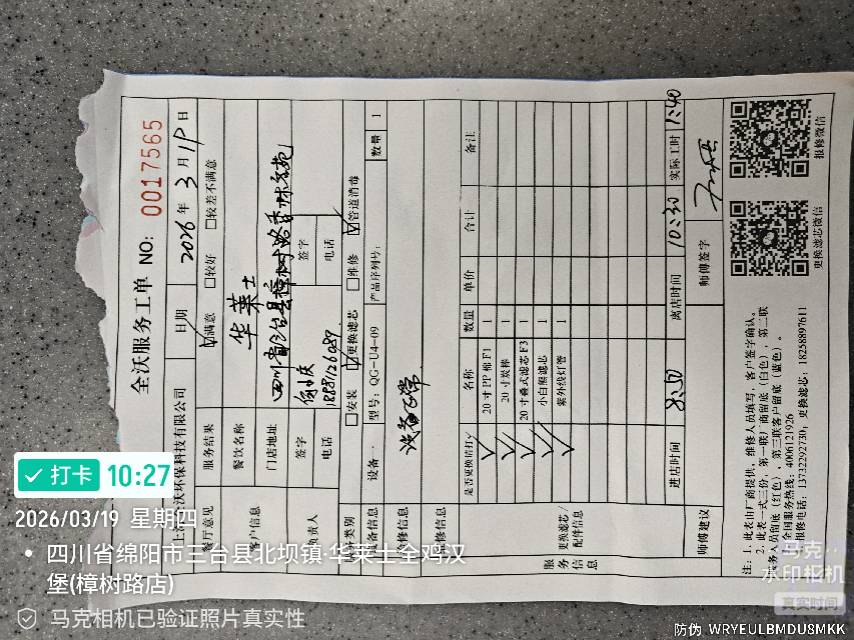 全沃服务工单 NO: 0017565
沃环保科技有限公司 日期 2026 年 3 月 19 日
餐厅意见 服务结果 ☑满意 □较好 □较差不满意
客户信息 餐饮名称 华莱士
门店地址 四川省三台县樟树路香
负责人 签字 签字
电话 电话
类别 □安装 ☑更换滤芯 □维修 ☑管道消毒
设备信息 设备 型号: QG-U4-09 产品序列号: 数量 1
设备正常
服务信息 更换滤芯/配件信息
是否更换请打√ 名称 数量 单价 合计 备注
√ 20寸PP棉F1 1
√ 20寸炭棒 1
√ 20寸叠式滤芯F3 1
√ 小白熊滤芯 1
紫外线灯管 1
进店时间 8:50 离店时间 10:30 实际工时 1:40
师傅建议 师傅签字
注: 1、此表由厂商提供、维修人员填写、客户签字确认。
2、此表一式三份, 第一联厂商留底(白色), 第二联
务人员留底(红色), 第三联客户留底(蓝色)。
全国服务热线: 4006121926
报修电话: 13732292730, 更换滤芯: 18258897611
更换滤芯微信
报修微信
打卡 10:27
2026/03/19 星期四
四川省绵阳市三台县北坝镇·华莱士全鸡汉
堡(樟树路店)
马克相机已验证照片真实性
马克
水印相机
真实时间
防伪 WRYEULBMDU8MKK